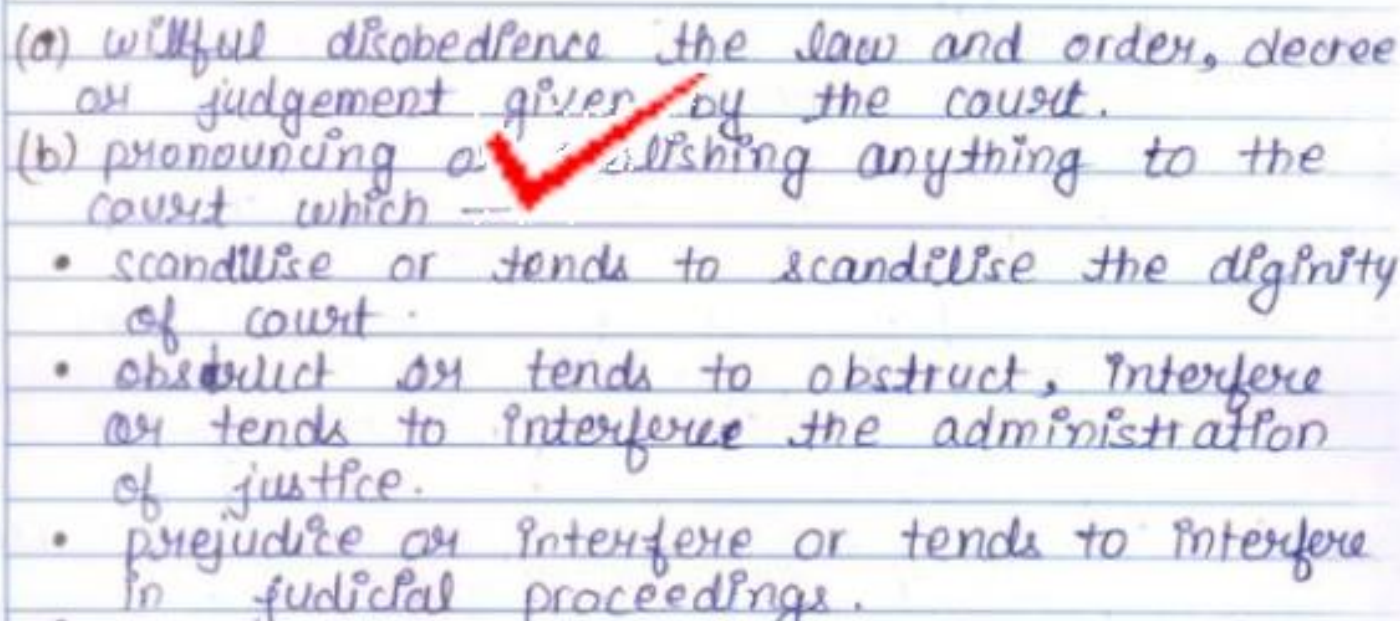 (a) willful disobedience the law and order, decree
or judgement given by the court.
(b) pronouncing anything to the
court which —
• scandilise or tends to scandilise the diginity
of court.
• obstruct or tends to obstruct, interfere
or tends to interferee the administration
of justice.
• prejudice or interfere or tends to interfere
in judicial proceedings.